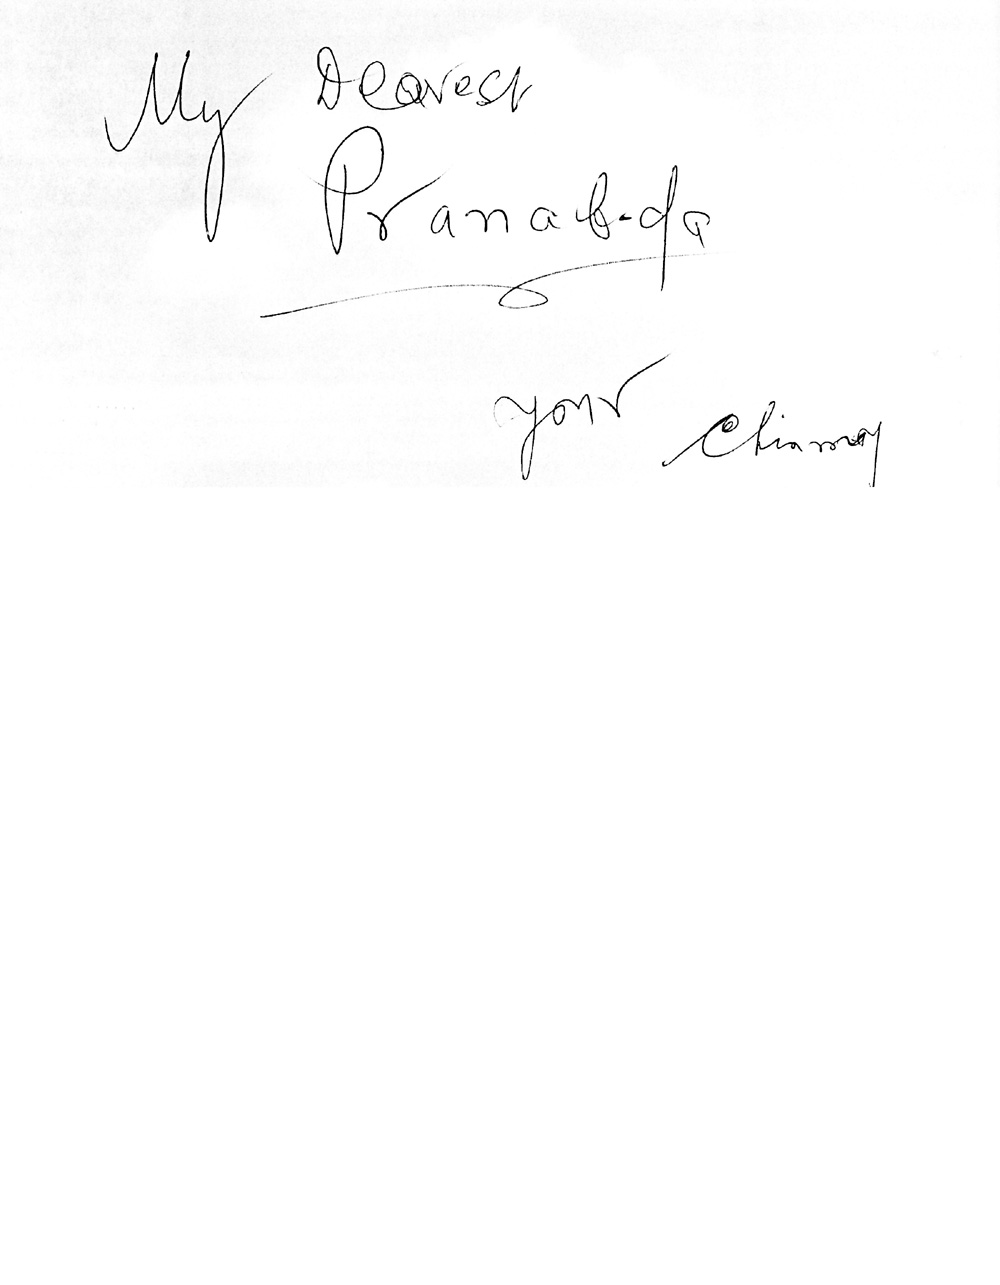 My Dearest
Pranab-da
your Chinmoy